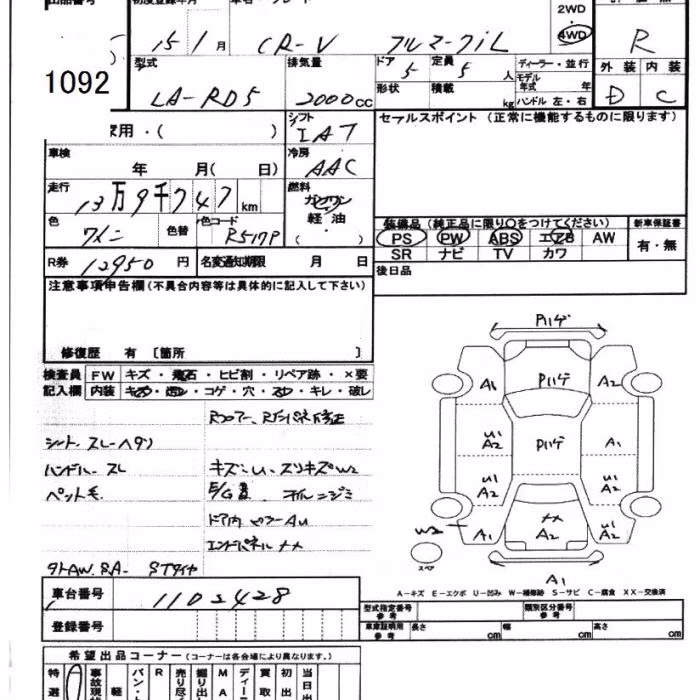 出品番号 初度登録年月 車名・グレード 2WD
・
15 1 月 CR-V フルマークiL 4WD R
1092
型式 排気量 ドア 5 定員 5 人 ディーラー・並行 外装 内装
LA-RD5 2000 cc 形状 積載 kg モデル 年式 年 ハンドル 左・右 D C
家用・( ) シフト IAT セールスポイント (正常に機能するものに限ります)
車検 年 月( 日) 冷房 AAC
走行 13万9千747 km 燃料 ガソリン
軽油
色 ワイン 色替 色コード R517P ( )
装備品 (純正品に限り○をつけてください) 新車保証書
PS PW ABS エアB AW 有・無
SR ナビ TV カワ
R券 12950 円 名変通知期限 月 日 後日品
注意事項申告欄(不具合内容等は具体的に記入して下さい)
修復歴 有 〔箇所 〕
検査員 FW キズ・飛石・ヒビ割・リペア跡・×要
記入欄 内装 キズ・汚れ・コゲ・穴・スレ・キレ・破レ
シート スレ・ヘタリ
ハンドル スレ キズ・U・スリキズW2
ペット毛
ドア内
エンドパネル XX
社外AW.RA- STタイヤ
Pハゲ
A1 Pハゲ A2
U1 A2 Pハゲ A1
U1 A2 U1 A2
W2 A1 XX A2 U1 A2
スペア
A1
A-キズ E-エクボ U-凹み W-補修跡 S-サビ C-腐食 XX-交換済
車台番号 1102428
登録番号
型式指定番号 参考 類別区分番号 参考
車庫証明用 参考 長さ cm 幅 cm 高さ cm
希望出品コーナー (コーナーは各会場により異なります。)
特選 事故現状 軽 バン・ト R 売り尽く 掘り出 MA ディー 買取 初出 当日出